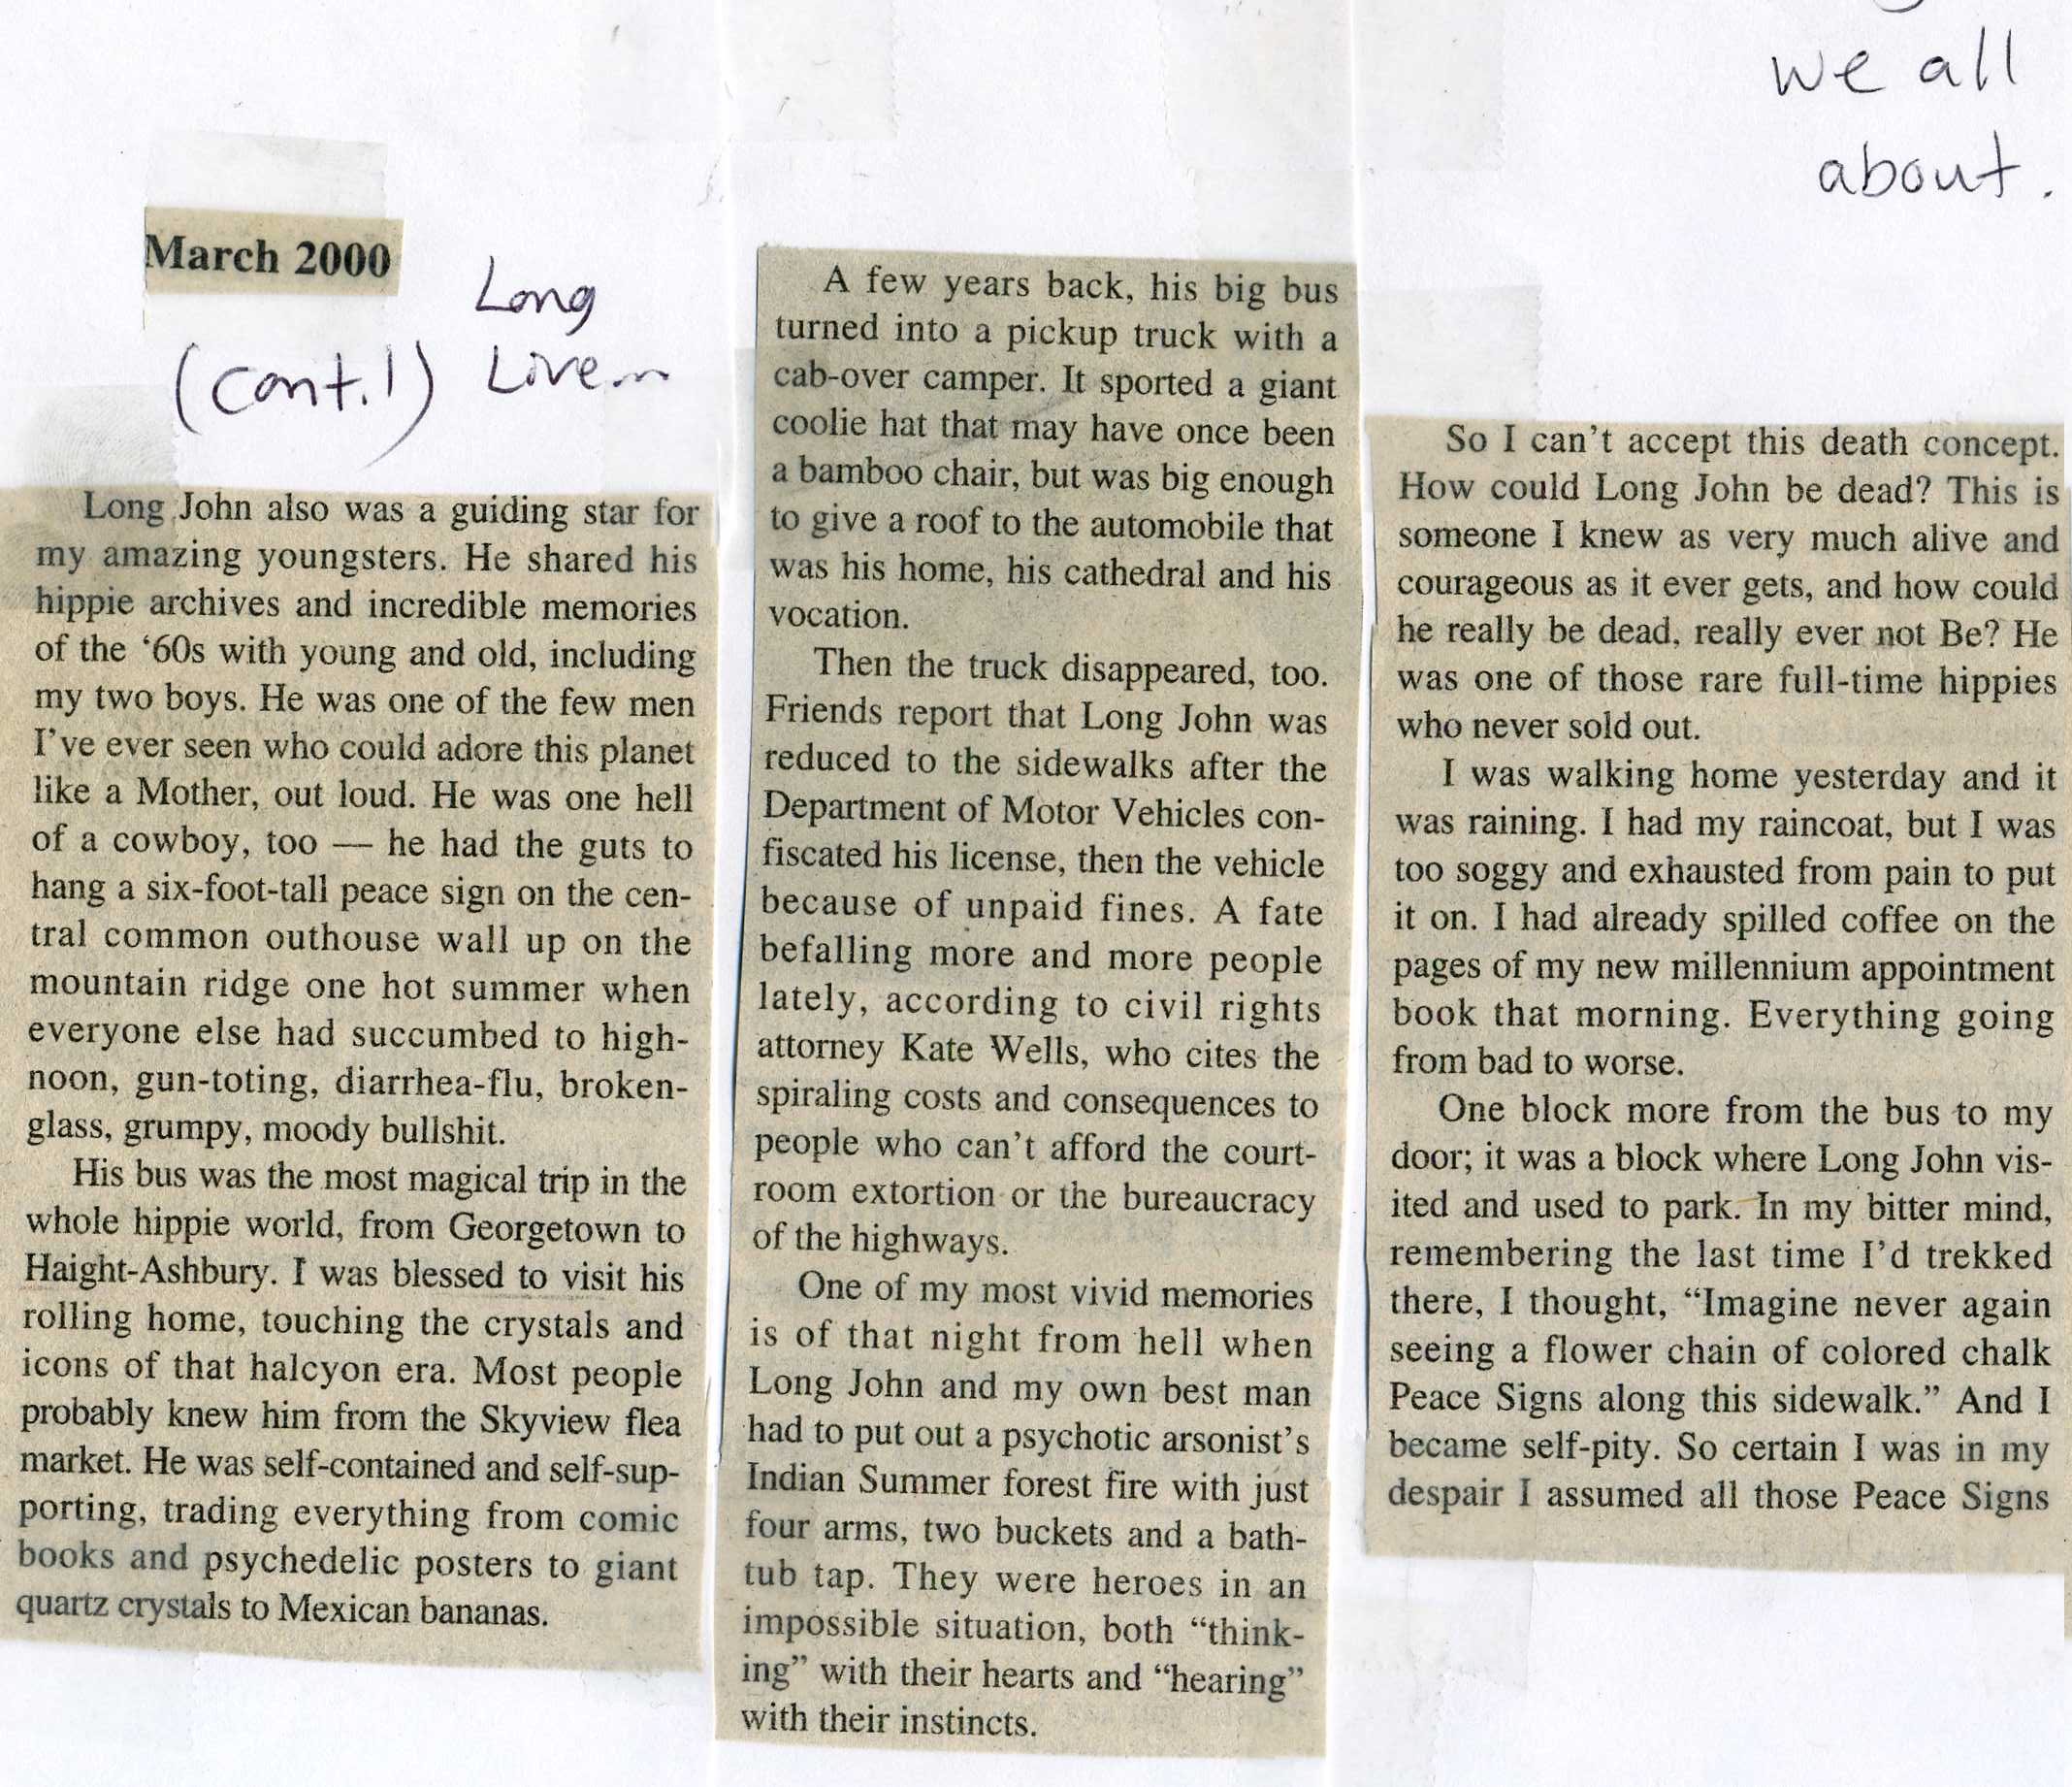 we all
about.
March 2000
(cont.1)
Long
Live...
Long John also was a guiding star for
my amazing youngsters. He shared his
hippie archives and incredible memories
of the ‘60s with young and old, including
my two boys. He was one of the few men
I’ve ever seen who could adore this planet
like a Mother, out loud. He was one hell
of a cowboy, too — he had the guts to
hang a six-foot-tall peace sign on the cen-
tral common outhouse wall up on the
mountain ridge one hot summer when
everyone else had succumbed to high-
noon, gun-toting, diarrhea-flu, broken-
glass, grumpy, moody bullshit.
His bus was the most magical trip in the
whole hippie world, from Georgetown to
Haight-Ashbury. I was blessed to visit his
rolling home, touching the crystals and
icons of that halcyon era. Most people
probably knew him from the Skyview flea
market. He was self-contained and self-sup-
porting, trading everything from comic
books and psychedelic posters to giant
quartz crystals to Mexican bananas.
A few years back, his big bus
turned into a pickup truck with a
cab-over camper. It sported a giant
coolie hat that may have once been
a bamboo chair, but was big enough
to give a roof to the automobile that
was his home, his cathedral and his
vocation.
Then the truck disappeared, too.
Friends report that Long John was
reduced to the sidewalks after the
Department of Motor Vehicles con-
fiscated his license, then the vehicle
because of unpaid fines. A fate
befalling more and more people
lately, according to civil rights
attorney Kate Wells, who cites the
spiraling costs and consequences to
people who can’t afford the court-
room extortion or the bureaucracy
of the highways.
One of my most vivid memories
is of that night from hell when
Long John and my own best man
had to put out a psychotic arsonist’s
Indian Summer forest fire with just
four arms, two buckets and a bath-
tub tap. They were heroes in an
impossible situation, both “think-
ing” with their hearts and “hearing”
with their instincts.
So I can’t accept this death concept.
How could Long John be dead? This is
someone I knew as very much alive and
courageous as it ever gets, and how could
he really be dead, really ever not Be? He
was one of those rare full-time hippies
who never sold out.
I was walking home yesterday and it
was raining. I had my raincoat, but I was
too soggy and exhausted from pain to put
it on. I had already spilled coffee on the
pages of my new millennium appointment
book that morning. Everything going
from bad to worse.
One block more from the bus to my
door; it was a block where Long John vis-
ited and used to park. In my bitter mind,
remembering the last time I’d trekked
there, I thought, “Imagine never again
seeing a flower chain of colored chalk
Peace Signs along this sidewalk.” And I
became self-pity. So certain I was in my
despair I assumed all those Peace Signs